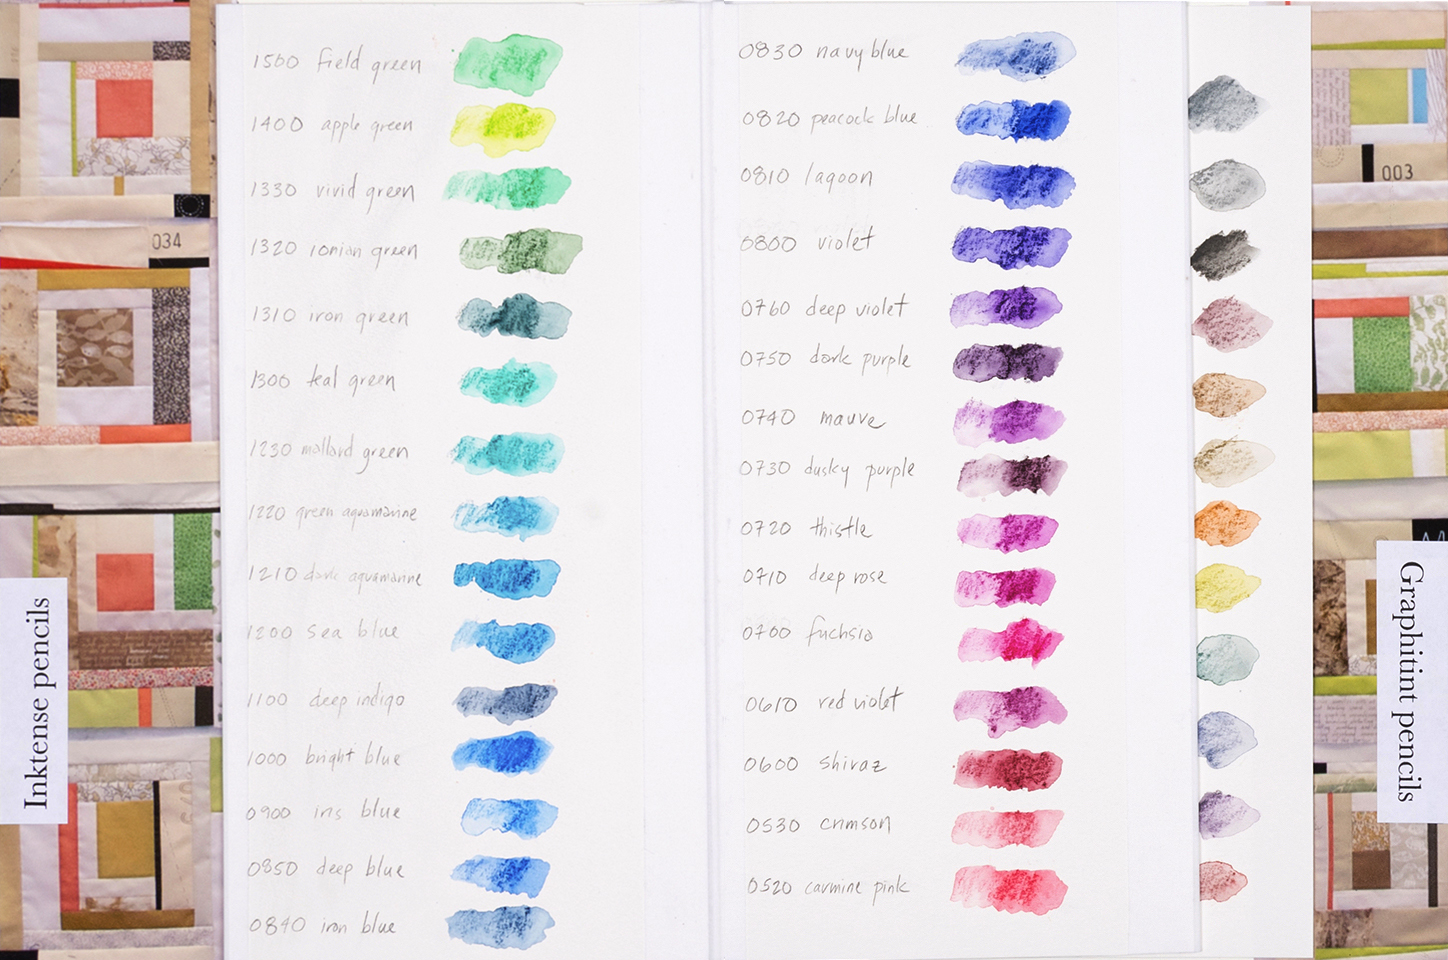 1500 field green
1400 apple green
1330 vivid green
1320 ionian green
1310 iron green
1300 teal green
1230 mallard green
1220 green aquamarine
1210 dark aquamarine
1200 sea blue
1100 deep indigo
1000 bright blue
0900 iris blue
0850 deep blue
0840 iron blue
0830 navy blue
0820 peacock blue
0810 lagoon
0800 violet
0760 deep violet
0750 dark purple
0740 mauve
0730 dusky purple
0720 thistle
0710 deep rose
0700 fuchsia
0610 red violet
0600 shiraz
0530 crimson
0520 carmine pink
Inktense pencils
Graphitint pencils
034
003